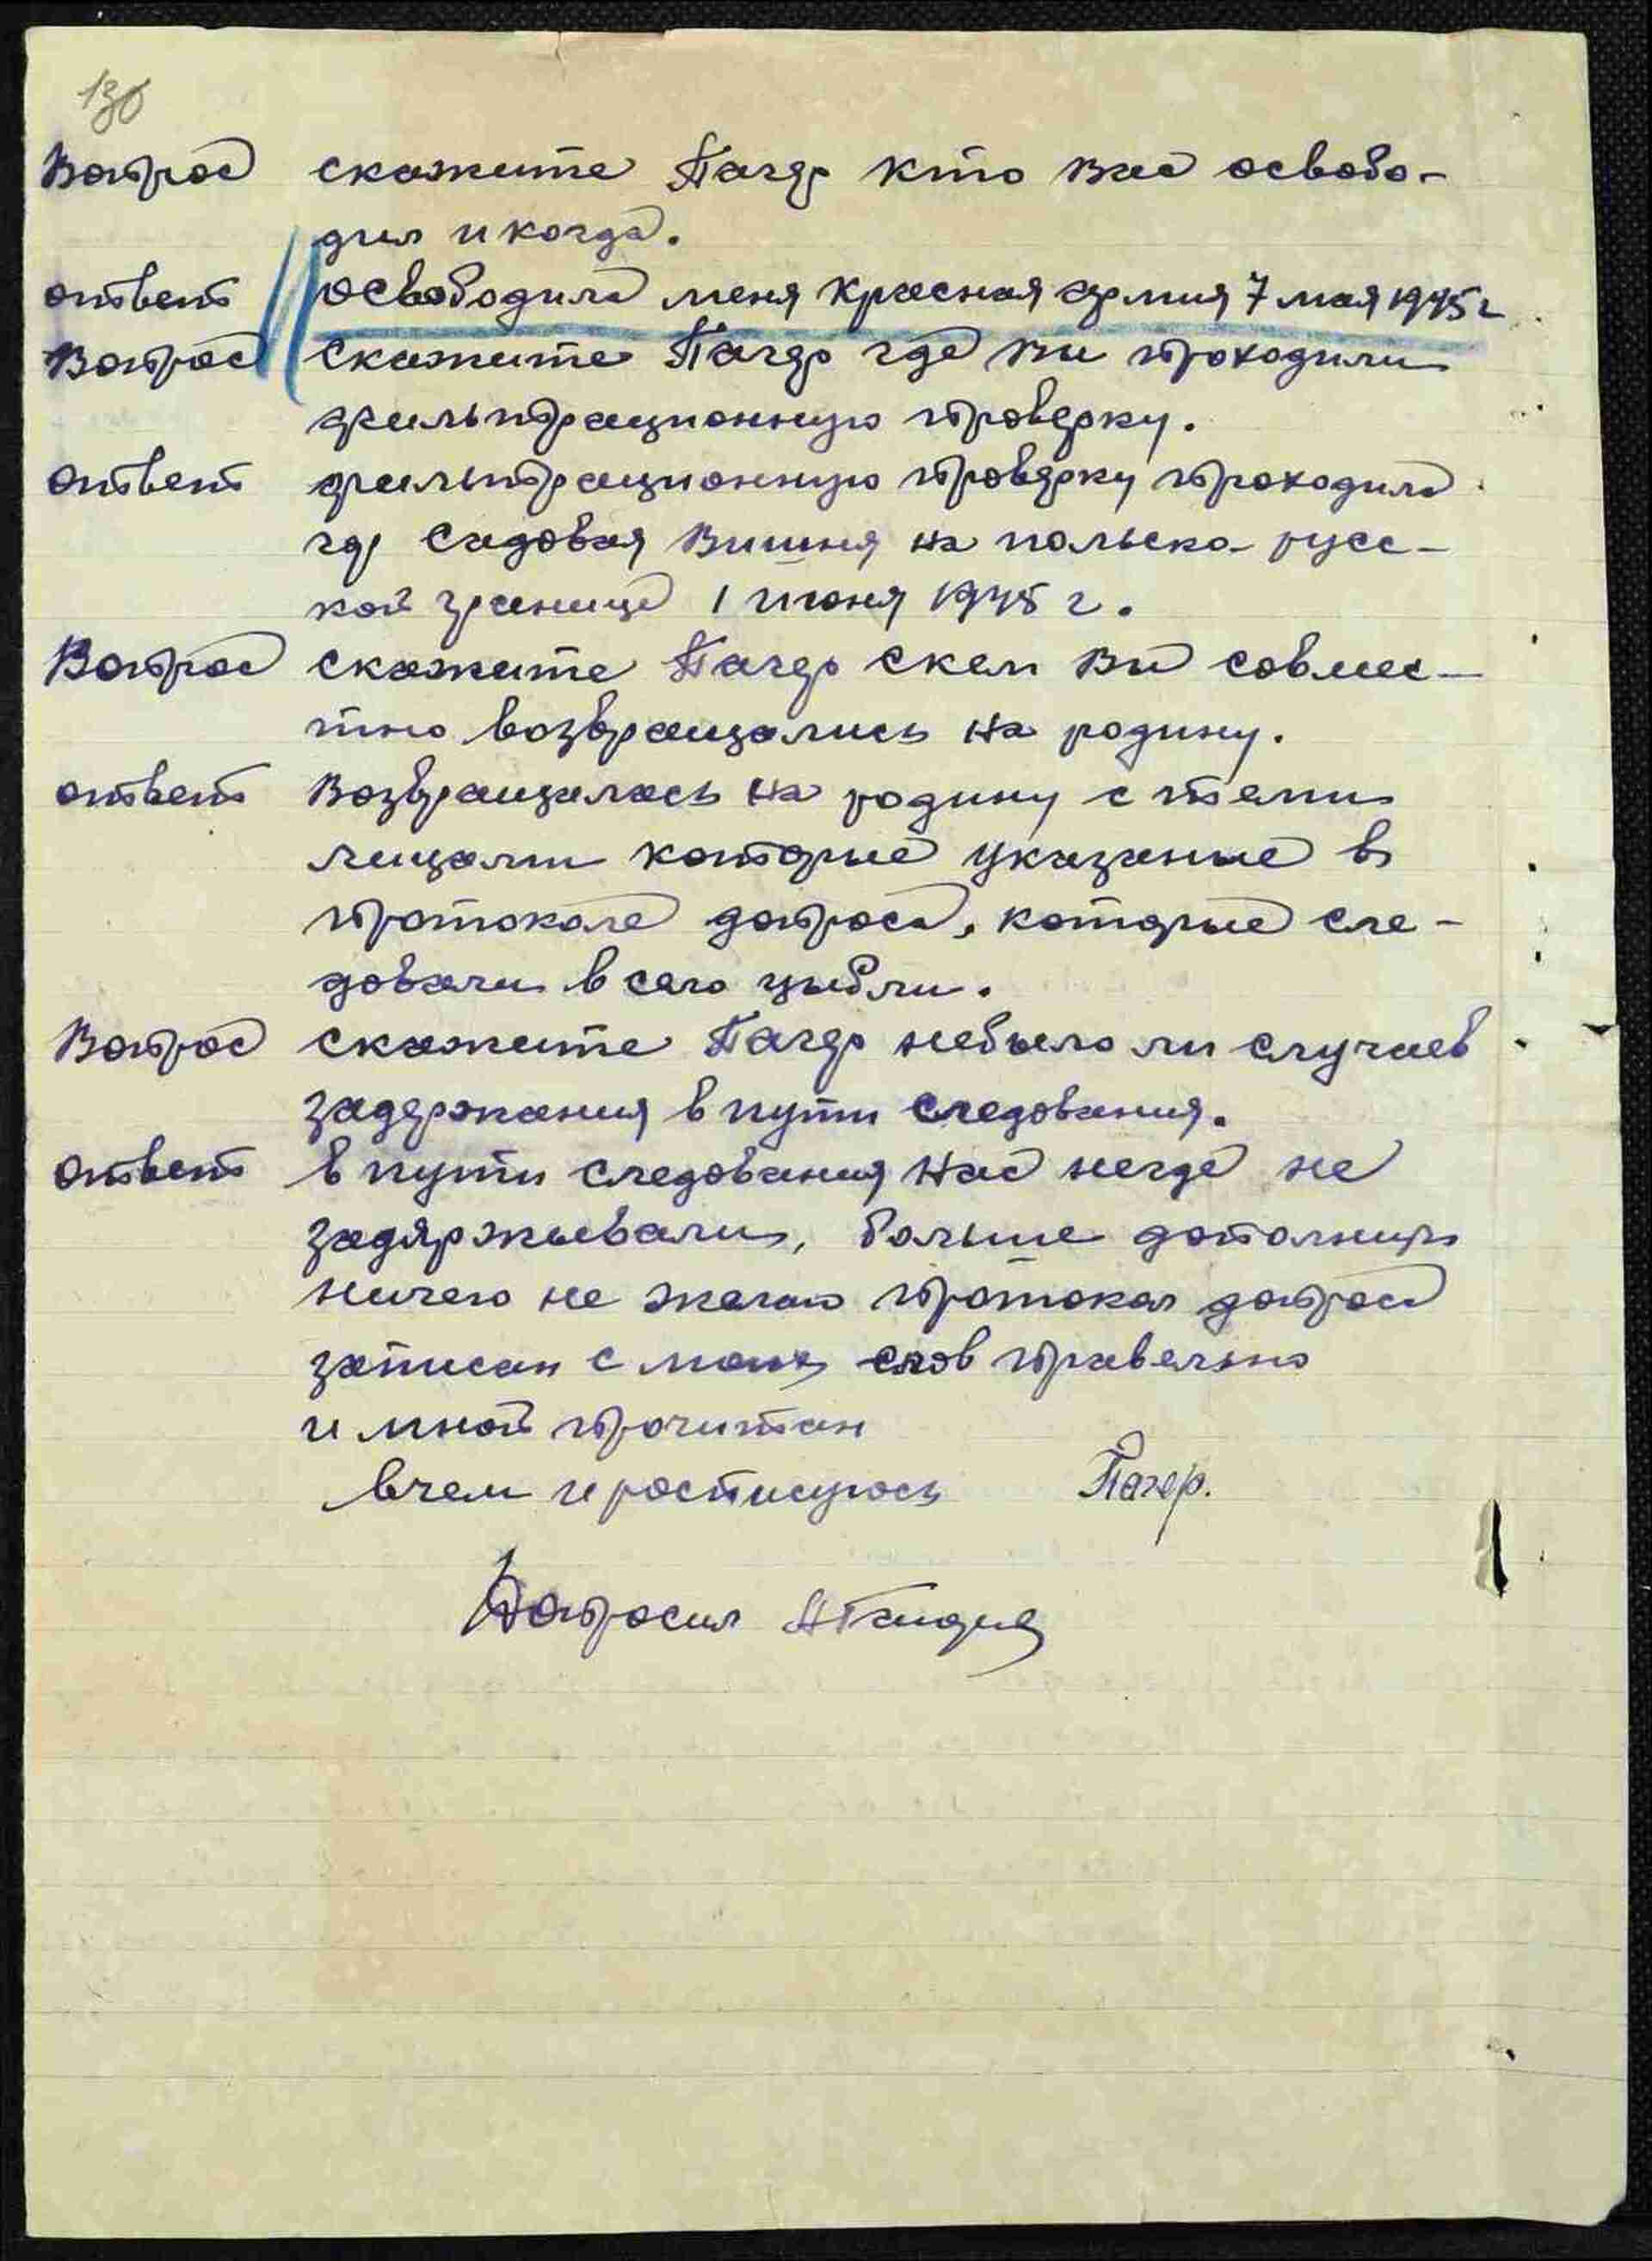 130
Вопрос скажите Пагер кто Вас освобо-
дил и когда.
ответ освободила меня красная армия 7 мая 1945 г
Вопрос скажите Пагер где Вы проходили
фильтрационную проверку.
ответ фильтрационную проверку проходила
гор Садовая Вишня на польско-русс-
кой границе 1 июня 1945 г.
Вопрос скажите Пагер скем Вы совмес-
тно возвращались на родину.
ответ Возвращалась на родину с теми
лицами которые указаные в
протоколе допроса, которые сле-
довали в село цыбли.
Вопрос скажите Пагер небыло ли случаев
задержания в пути следования.
ответ в пути следования нас негде не
задержывали, больше дополнить
ничего не желаю протокол допроса
записан с моих слов правельно
и мной прочитан
вчем и росписуюсь Пагер.
Допросил